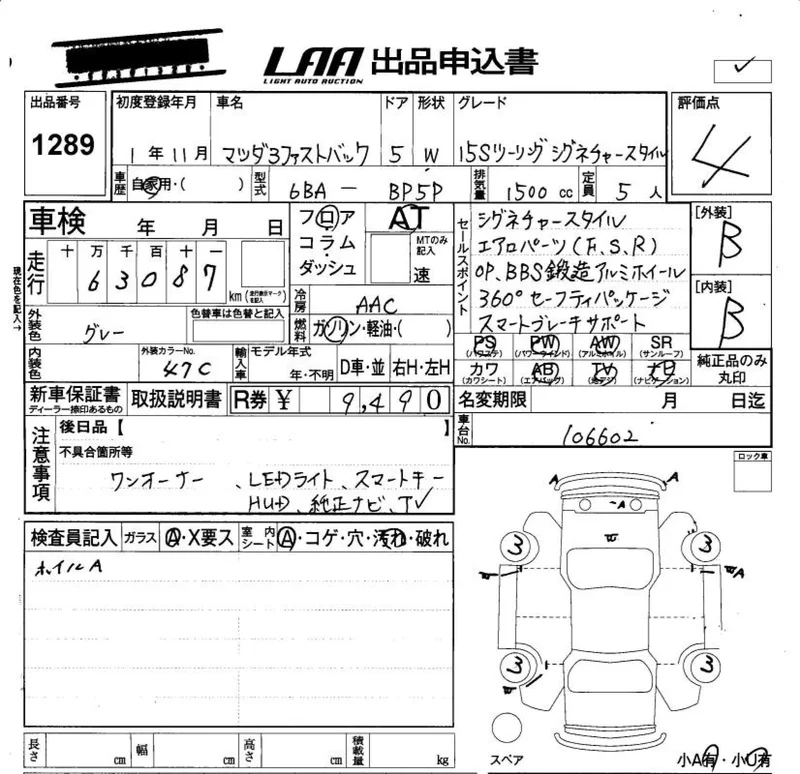 LAA 出品申込書
LIGHT AUTO AUCTION
出品番号 初度登録年月 車名 ドア 形状 グレード 評価点
1289 1年11月 マツダ3ファストバック 5 W 15Sツーリング シグネチャースタイル 4
車歴 自家用・( ) 型式 6BA - BP5P 排気量 1500 cc 定員 5 人
車検 年 月 日 フロア・コラム・ダッシュ AT MTのみ記入 速
セールスポイント シグネチャースタイル [外装] B
走行 十 万 千 百 十 一 エアロパーツ(F、S、R)
63087 km (走行距離マークを記入) OP、BBS鍛造アルミホイール [内装] B
現在色を記入→ 冷房 AAC 360°セーフティパッケージ
外装色 グレー 色替車は色替と記入 燃料 ガソリン・軽油・( ) スマートブレーキサポート
PS (パワステ) PW (パワーウインド) AW (アルミホイル) SR (サンルーフ)
内装色 外装カラーNo. 47C 輸入車 モデル年式 年・不明 D車・並 右H・左H
カワ (カワシート) AB (エアバッグ) TV (地デジ) ナビ (ナビゲーション) 純正品のみ丸印
新車保証書 ディーラー捺印あるもの 取扱説明書 R券 ¥ 9,490 名変期限 月 日迄
注意事項 後日品【 】 車台No. 106602
不具合箇所等 ロック車
ワンオーナー、LEDライト、スマートキー
HUD、純正ナビ、TV
検査員記入 ガラス A・X要ス 室内シート A・コゲ・穴・汚れ・破れ
ホイルA
A A
A
W
3 3
W WA
3 3
W
長さ cm 幅 cm 高さ cm 積載量 kg
スペア 小A有・小U有